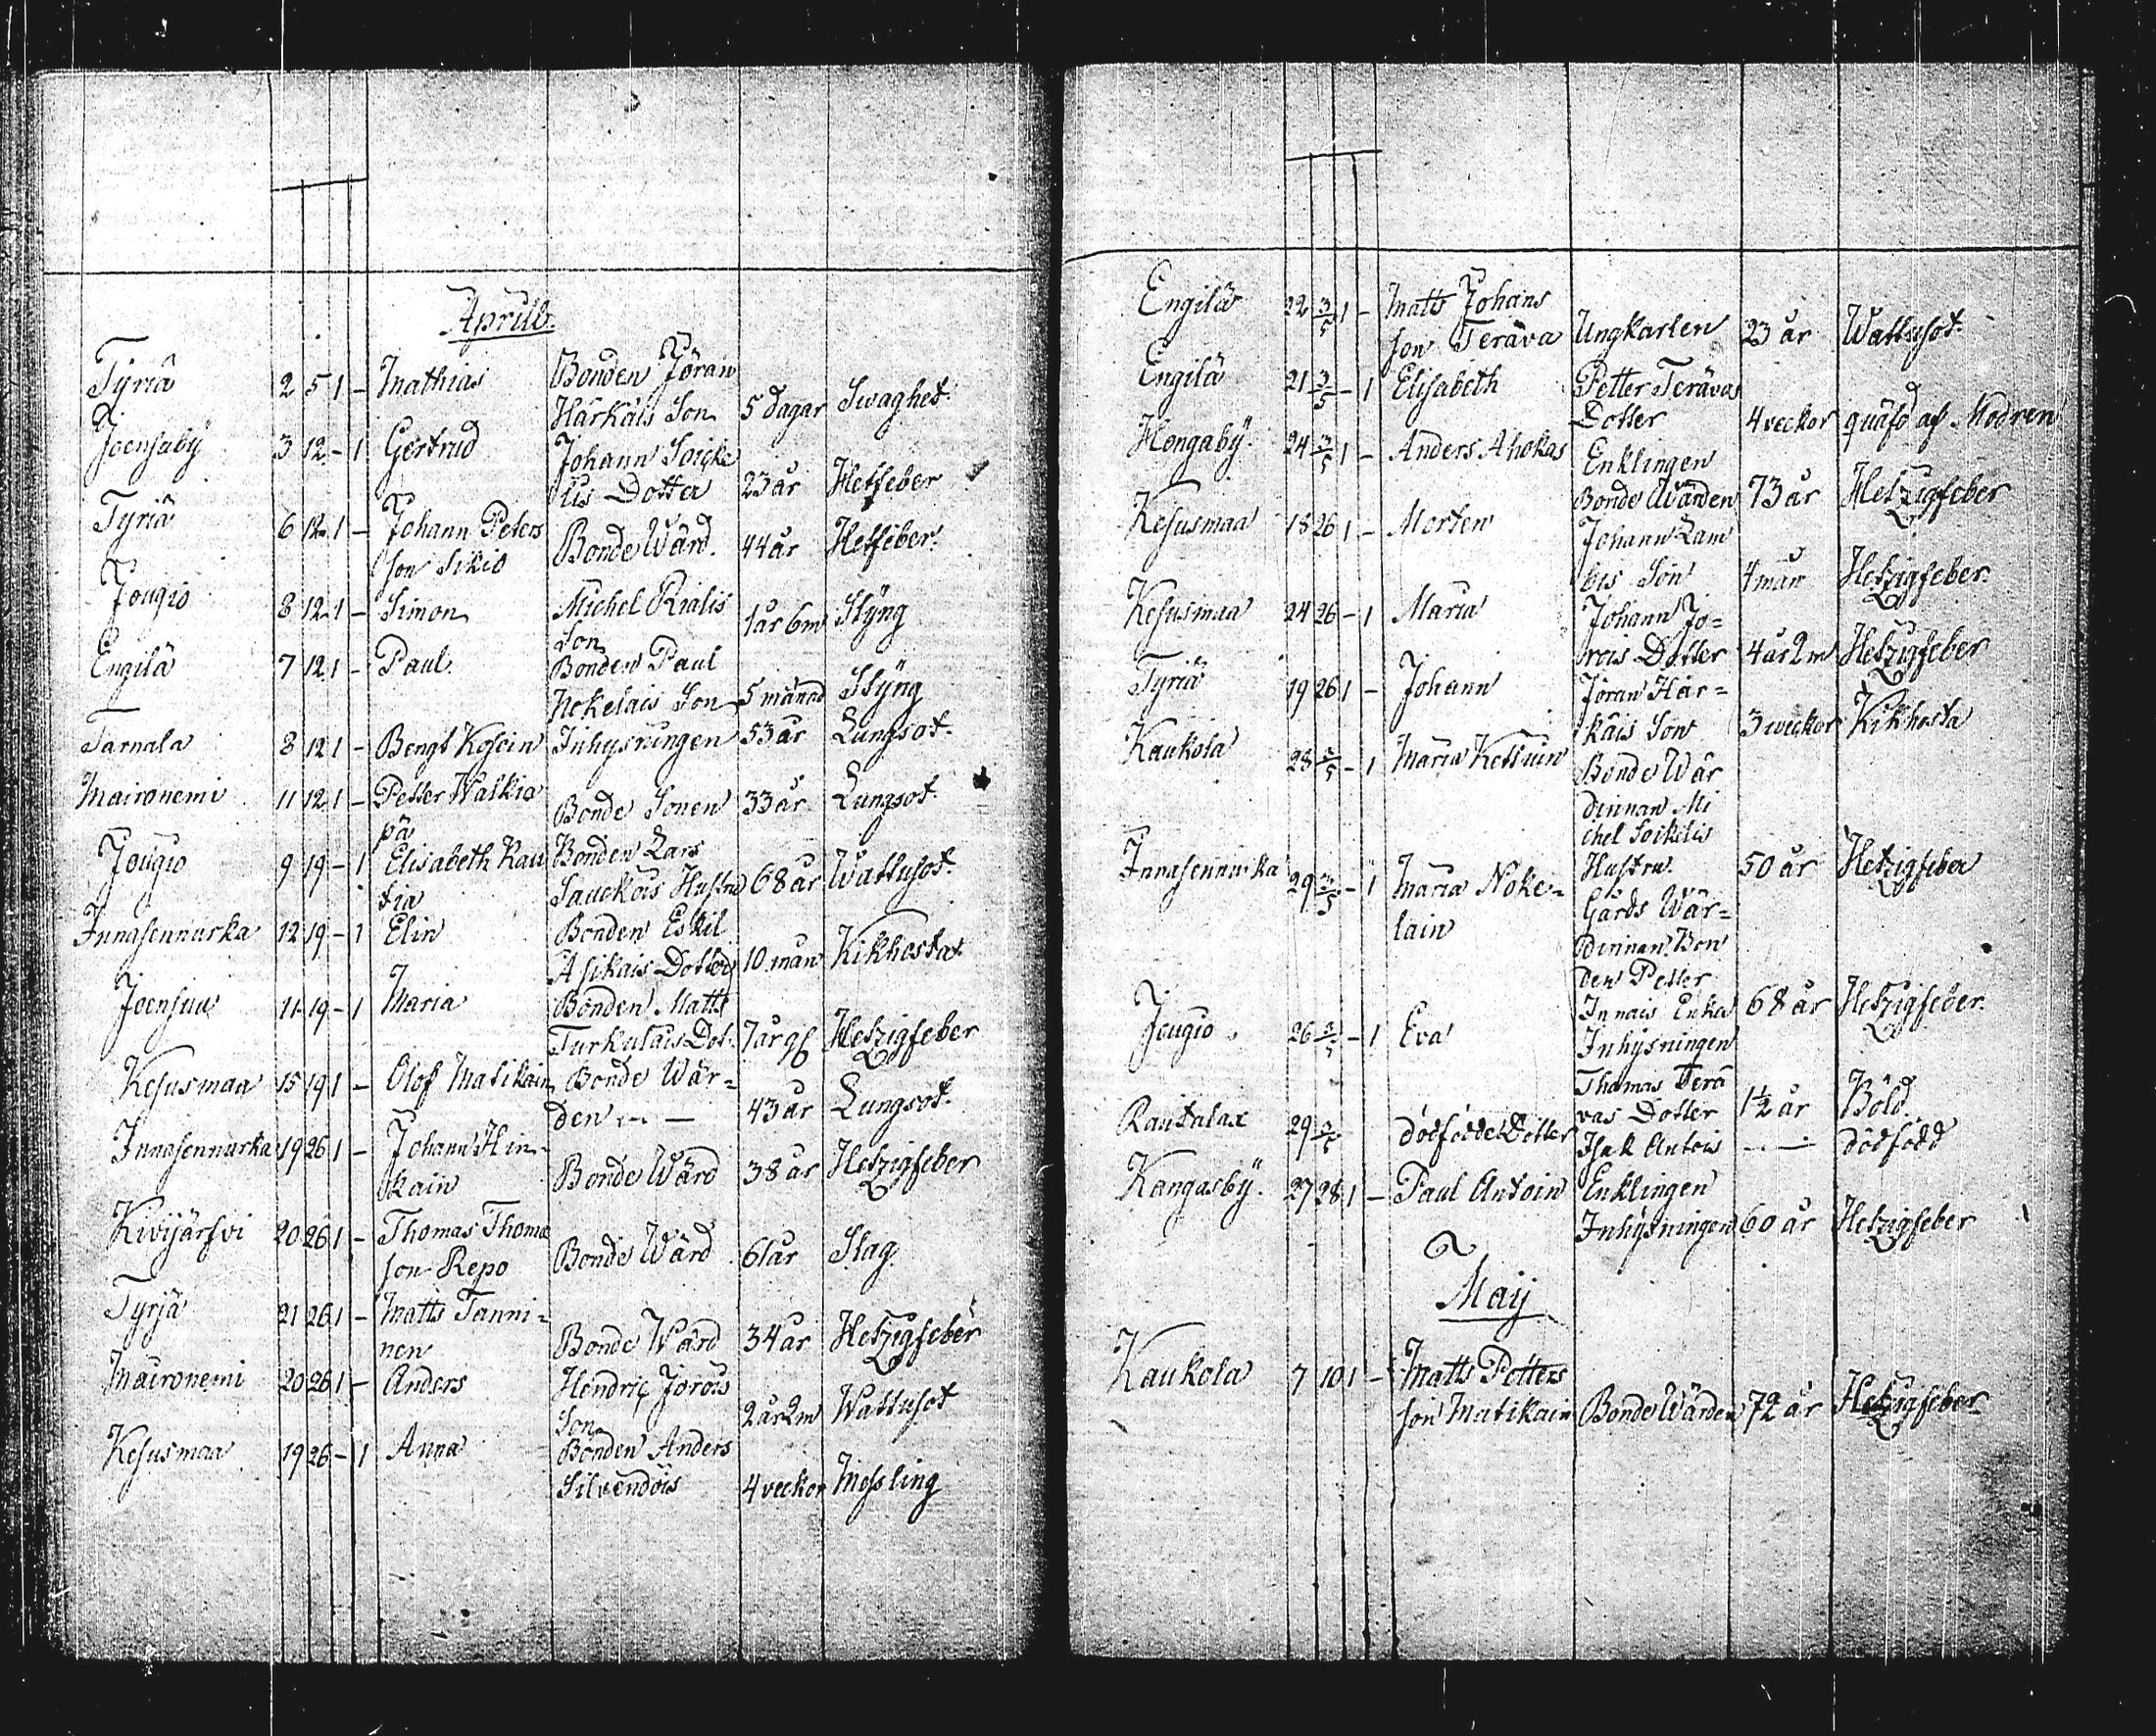 Aprill.
Tyriä 2 5 1 - Mathias Bonden Jöran
Härkäis Son 5 dagar Swaghet.
Joensaby 3 12 - 1 Gertrud Johann Soicke
lis Dotter 23 år Hetfeber
Tyriä 6 12 1 - Johann Peters Bonde Wärd. 44 år Hetfeber.
son Sikiö
Jougio 8 12 1 - Simon Michel Rialis 1 år 6 m Styng
Son
Engilä 7 12 1 - Paul Bonden Paul
Nokelais Son 5 månad Styng
Tarnala 8 12 1 - Bengt Kosoin Inhysningen 53 år Lungsot.
Maironemi 11 12 1 - Petter Walkia Bonde Sonen 33 år Lungsot.
pä
Jougio 9 19 - 1 Elisabeth Rau Bonden Lars
tia Sauckois Hustru 68 år Wattusot.
Innasennurka 12 19 - 1 Elin Bonden Eskil
Asikais Dotter 10 mån Kikhosta
Joensuu 11 19 - 1 Maria Bonden Matts
Turkulais Dot. 7 år Hetzigfeber
Kesusmaa 15 19 1 - Olof Matikain Bonde Wär=
den - - 43 år Lungsot.
Innasennurka 19 26 1 - Johann Hin-
kain Bonde Wärd 38 år Hetzigfeber
Kivijärfvi 20 26 1 - Thomas Thoma
son Repo Bonde Wärd 61 år Slag.
Tyrjä 21 26 1 - Matts Tanni=
nen Bonde Wärd 34 år Hetzigfeber
Maironemi 20 26 1 - Anders Hendric Jorois
Son 2 år 2 m Wattusot
Kesusmaa 19 26 - 1 Anna Bonden Anders
Silvendois 4 veckor Messling
Engilä 22 3/5 1 - Matts Johans
son Teräva Ungkarlen 23 år Wattusot.
Engilä 21 3/5 - 1 Elisabeth Petter Terävas
Dotter 4 veckor quäfd af Modren
Hongaby. 24 3/5 1 - Anders Ahokas Enklingen
Bonde Wärden 73 år Hetzigfeber
Kesusmaa 18 26 1 - Morten Johann Lam
bis Son 4 mån Hetzigfeber.
Kesusmaa 24 26 - 1 Maria Johann Jo=
rois Dotter 4 år 2 m Hetzigfeber
Tyriä 19 26 1 - Johann Jöran Här=
käis Son 3 veckor Kikhosta
Kaukola 28 3/5 - 1 Maria Kettuin Bonde Wär
dinnan Mi
chel Soikelis
Hustru. 50 år Hetzigfeber
Innasennurka 29 3/5 - 1 Maria Noke= Gårds Wär=
lain dinnan Bon
den Petter
Innais Enka 68 år Hetzigfeber.
Jougio 26 3/5 - 1 Eva Inhysningen
Thomas Terä
vas Dotter 1½ år Böld.
Rautalax 29 3/5 dödfödde Dotter Isak Antois - - dödfödd
Kangasby. 27 28 1 - Paul Antoin Enklingen
Inhysningen 60 år Hetzigfeber
Maij
Kaukola 7 10 1 - Matts Petters
son Matikain Bonde Wärden 72 år Hetzigfeber